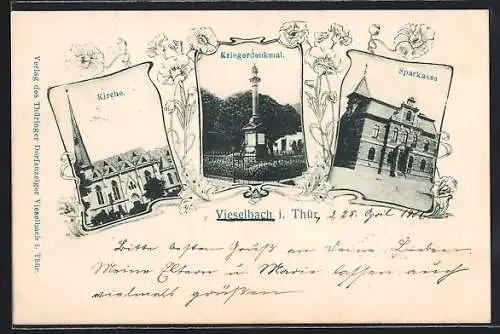 Verlag des Thüringer Dorfanzeiger Vieselbach i. Thür.
Kirche.
Kriegerdenkmal.
Sparkasse
Vieselbach i. Thür,
28. April
Bitte besten Gruß an Deine Lieben
Meine Eltern u Marie lassen auch
vielmals grüßen